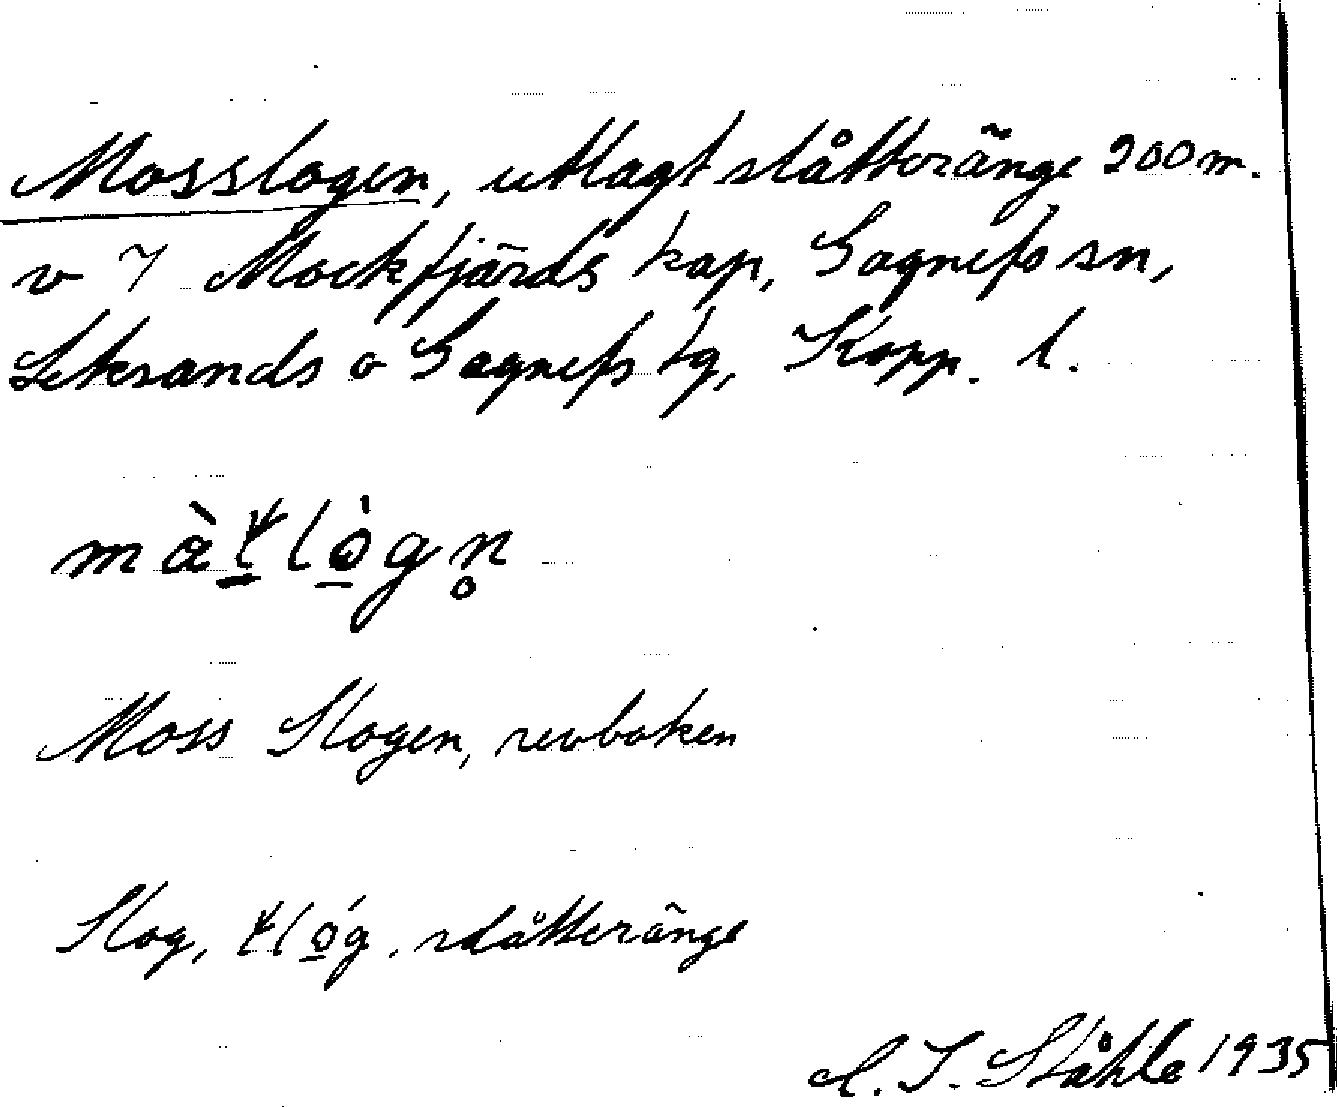 Mosslogen, utlagt slåtteränge 200 m.
v 7 Mockfjärds kap, Gagnefs sn,
Leksands o Gagnefs tg, Kopp. l.
Moss Slogen, revboken
Slog, slåtteränge
C. I. Ståhle 1935